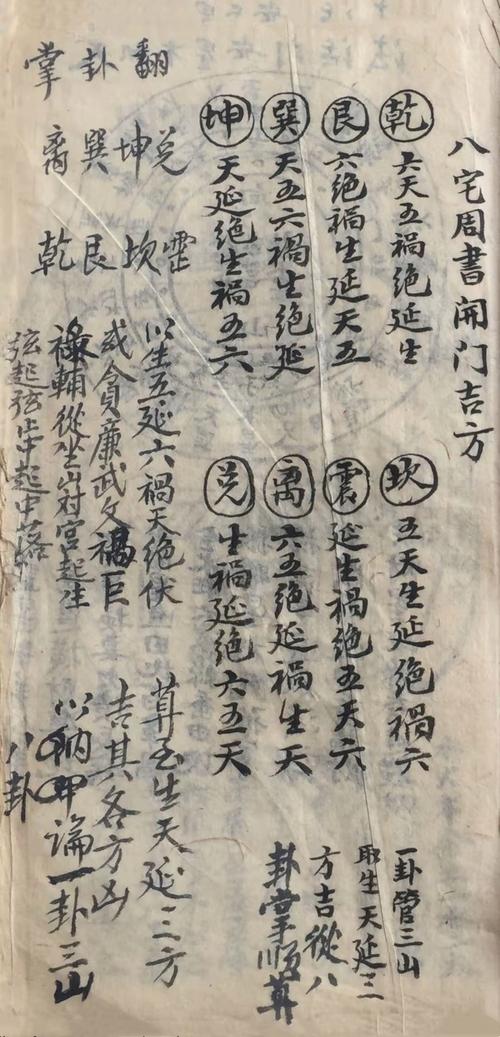 八宅周書開门吉方
乾 六天五禍绝延生
艮 六绝禍生延天五
巽 天五六禍生绝延
坤 天延绝生禍五六
坎 五天生延绝禍六
震 延生禍绝五天六
离 六五绝延禍生天
兑 生禍延绝六五天
一卦管三山
取生天延三
方吉從八
卦掌順算
翻卦掌
兑坤巽离
震坎艮乾
以生五延六禍天绝伏
或貪廉武文巨
祿輔從坐山対宮起生
弦起弦止中起中落
算至生天延三方
吉其各方凶
以納甲論一卦三山
八卦